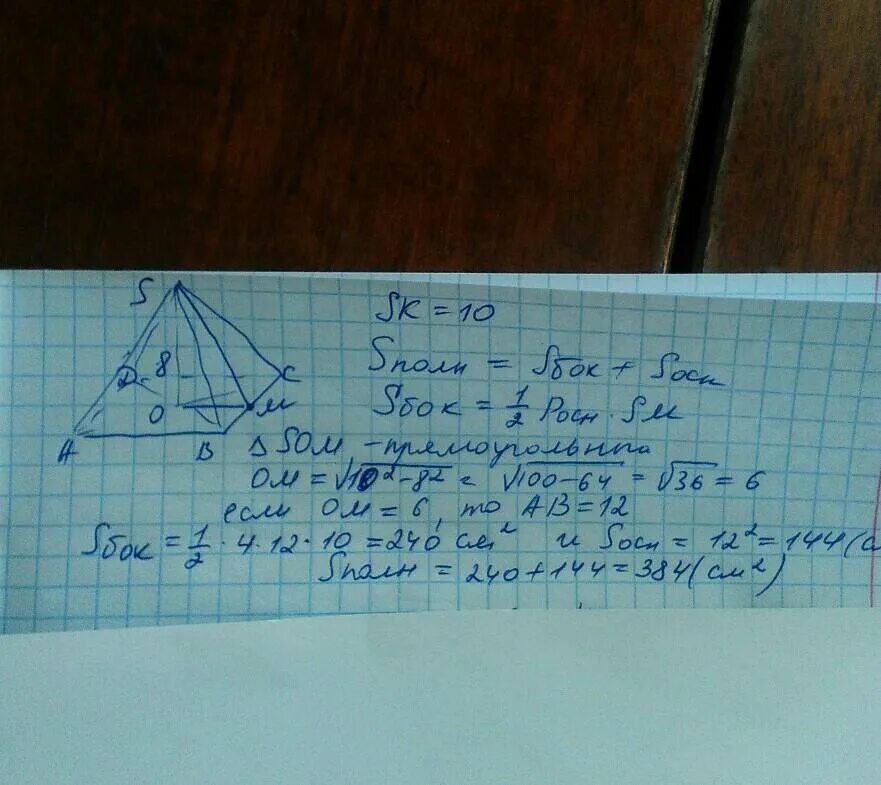 S
8
D
C
O
M
A
B
SK = 10
Sполн = Sбок + Sосн
Sбок = 1/2 Pосн · SM
Δ SOM, - прямоугольный
OM = √10² - 8² = √100 - 64 = √36 = 6
если OM = 6, то AB = 12
Sбок = 1/2 · 4 · 12 · 10 = 240 см² и Sосн = 12² = 144 (с
Sполн = 240 + 144 = 384 (см²)